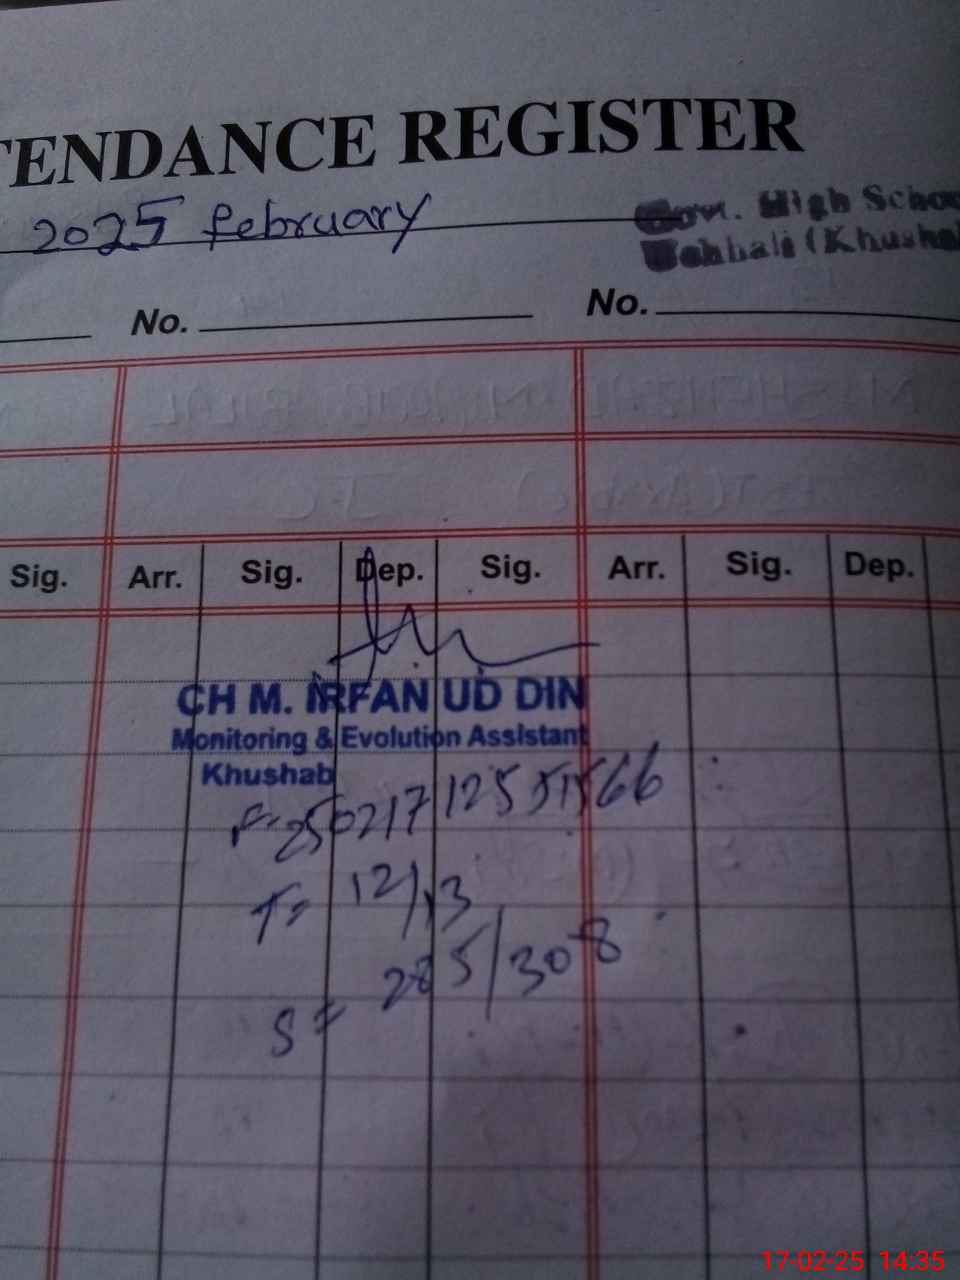 TENDANCE REGISTER
2025 february
Govt. High School
(Khushab
No.
No.
Sig. Arr. Sig. Dep. Sig. Arr. Sig. Dep.
CH M. IRFAN UD DIN
Monitoring & Evolution Assistant
Khushab
F-250217125551566
T= 12/13
S= 285/308
17-02-25 14:35